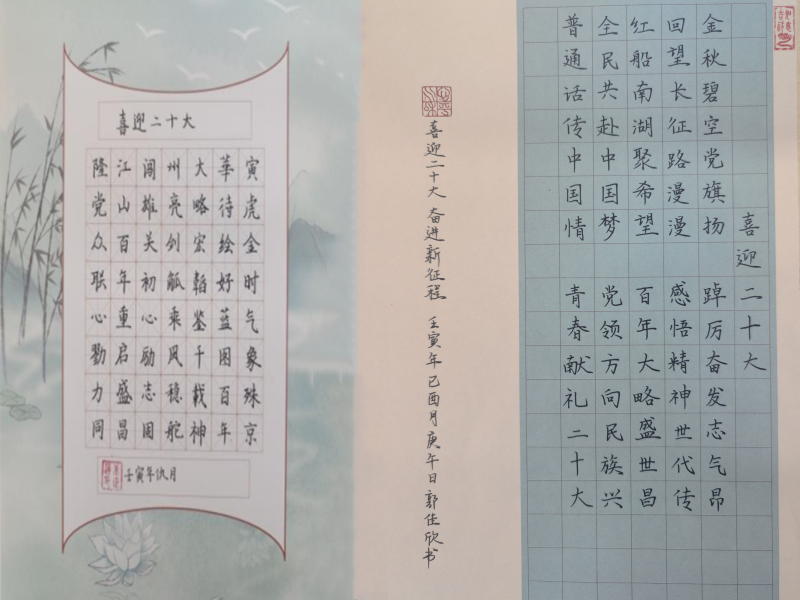 喜迎二十大
金秋碧空党旗扬 踔厉奋发志气昂
回望长征路漫漫 感悟精神世代传
红船南湖聚希望 百年大略盛世昌
全民共赴中国梦 党领方向民族兴
普通话传中国情 青春献礼二十大
喜迎二十大 奋进新征程 壬寅年己酉月庚午日郭佳欣书
喜迎二十大
寅虎金时气象殊京
華待绘好蓝图百年
大略宏韬鉴千载神
州亮剑觚乘风稳舵
闯雄关初心励志固
江山百年重启盛昌
隆党众联心勠力同
壬寅年仇月